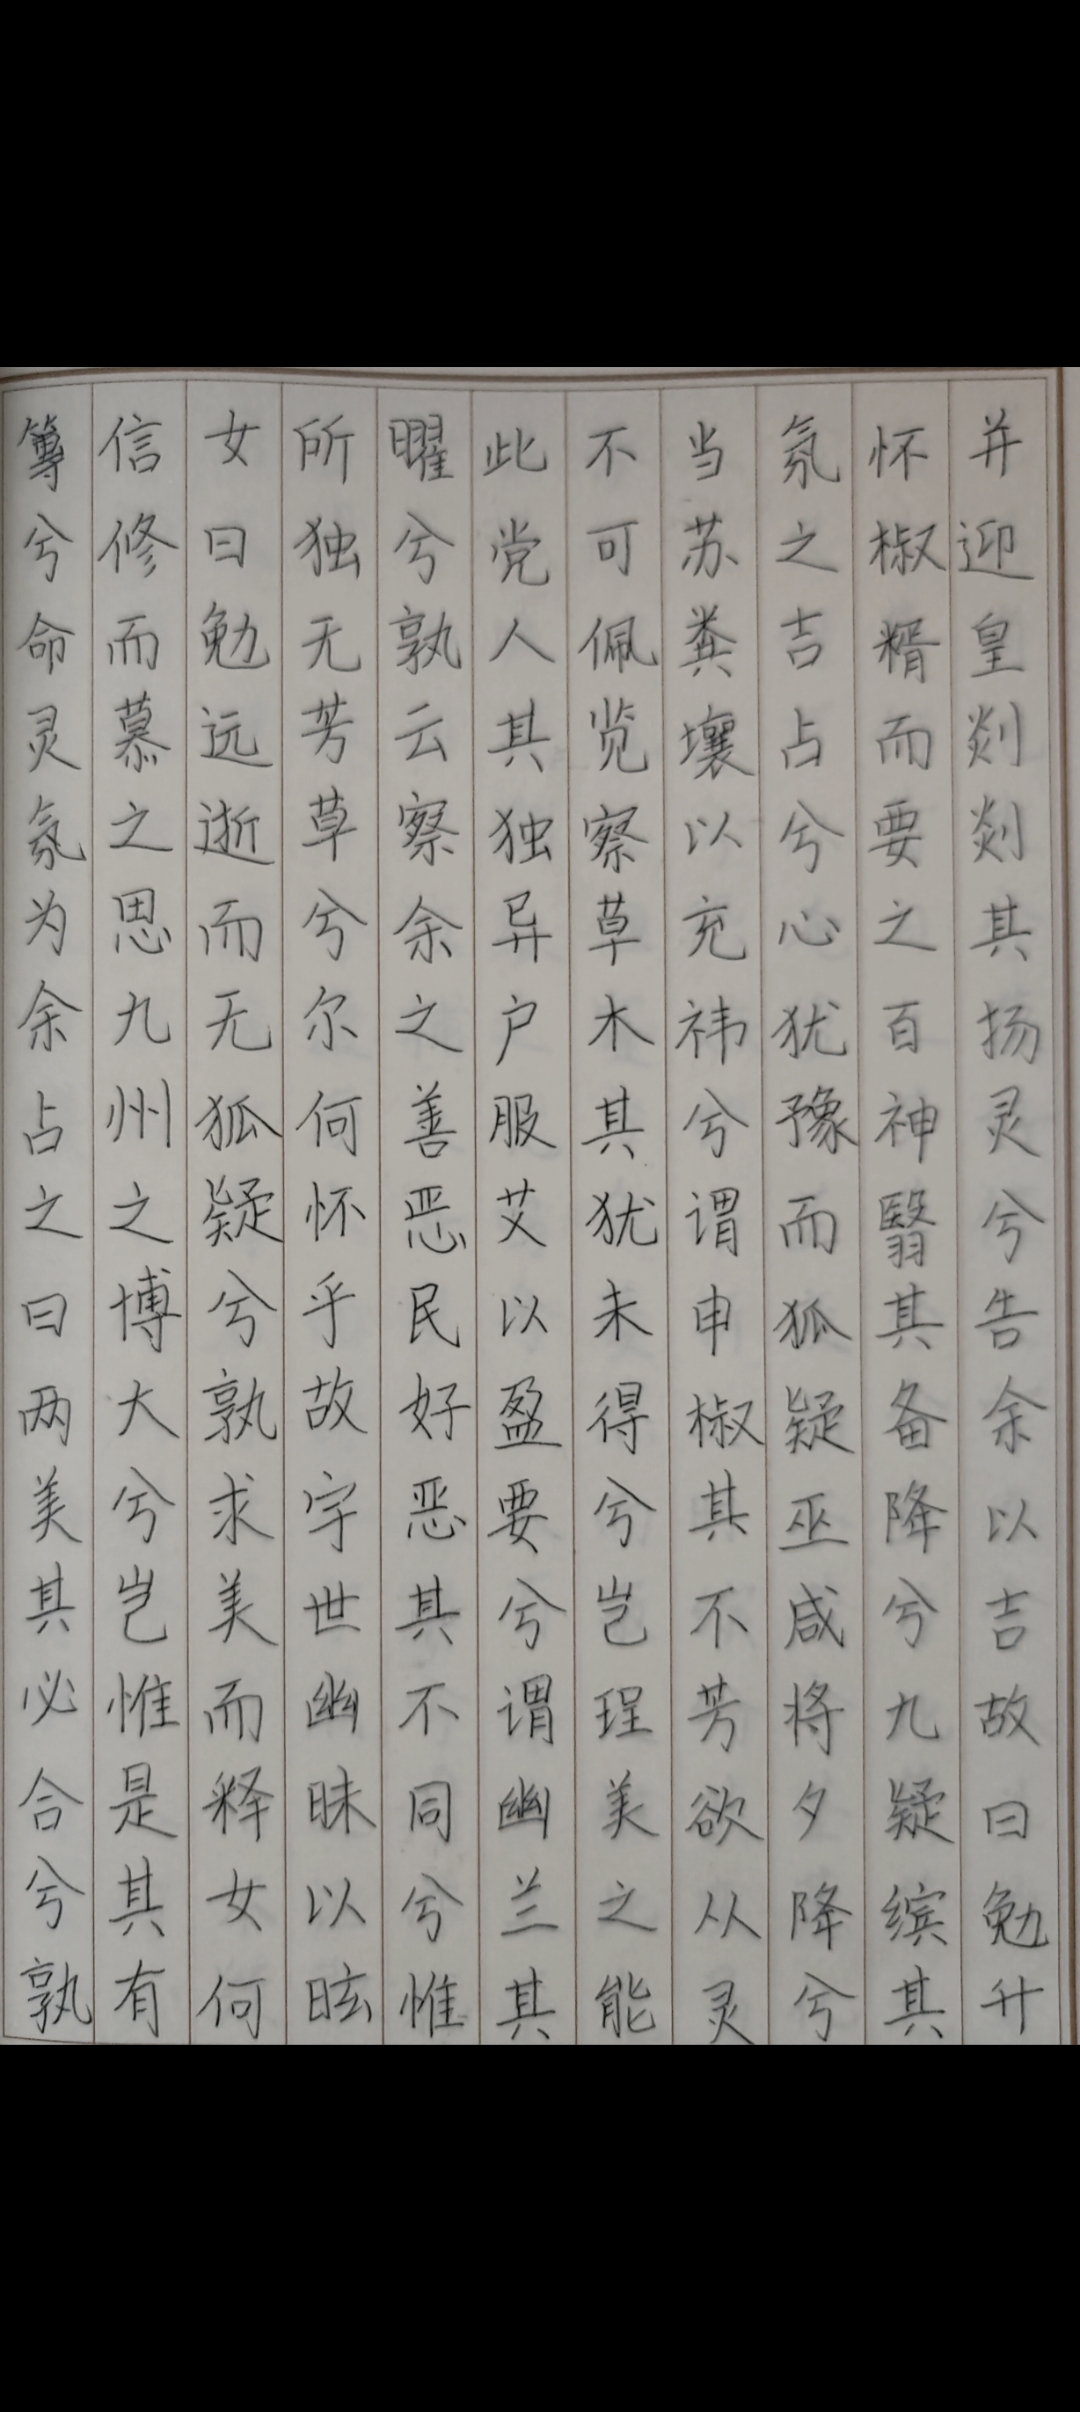 篿兮命灵氛为余占之曰两美其必合兮孰
信修而慕之思九州之博大兮岂惟是其有
女曰勉远逝而无狐疑兮孰求美而释女何
所独无芳草兮尔何怀乎故宇世幽昧以眩
曜兮孰云察余之善恶民好恶其不同兮惟
此党人其独异户服艾以盈要兮谓幽兰其
不可佩览察草木其犹未得兮岂珵美之能
当苏粪壤以充祎兮谓申椒其不芳欲从灵
氛之吉占兮心犹豫而狐疑巫咸将夕降兮
怀椒糈而要之百神翳其备降兮九疑缤其
并迎皇剡剡其扬灵兮告余以吉故曰勉升